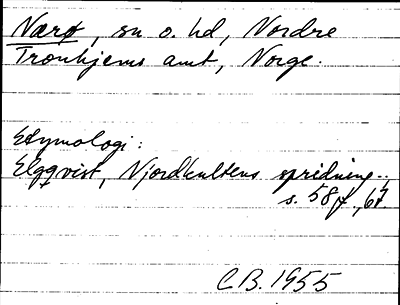 Nærø, sn o. hd, Nordre
Tronhjems amt, Norge.
Etymologi:
Elgqvist, Njordkultens spridning..
s. 58f., 67.
C.B. 1955